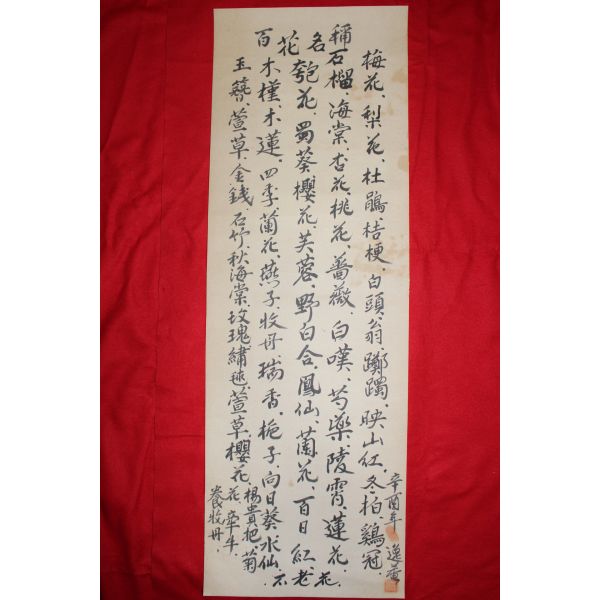 梅花、梨花、杜鵑、桔梗、白頭翁、躑躅、映山紅、冬柏、鷄冠、
石榴、海棠、杏花、桃花、薔薇、白嘆、芍藥、陵霄、蓮花、
匏花、蜀葵、櫻花、芙蓉、野白合、鳳仙、蘭花、百日紅、老花、
木槿、木蓮、四季、蘭花、燕子、牧丹、瑞香、梔子、向日葵、水仙、
玉簪、萱草、金錢、石竹、秋海棠、玫瑰、繡毬、萱草、櫻花、
楊貴把、菊花、牽牛、
養牧丹、
百花名稱
辛酉年 逸菴